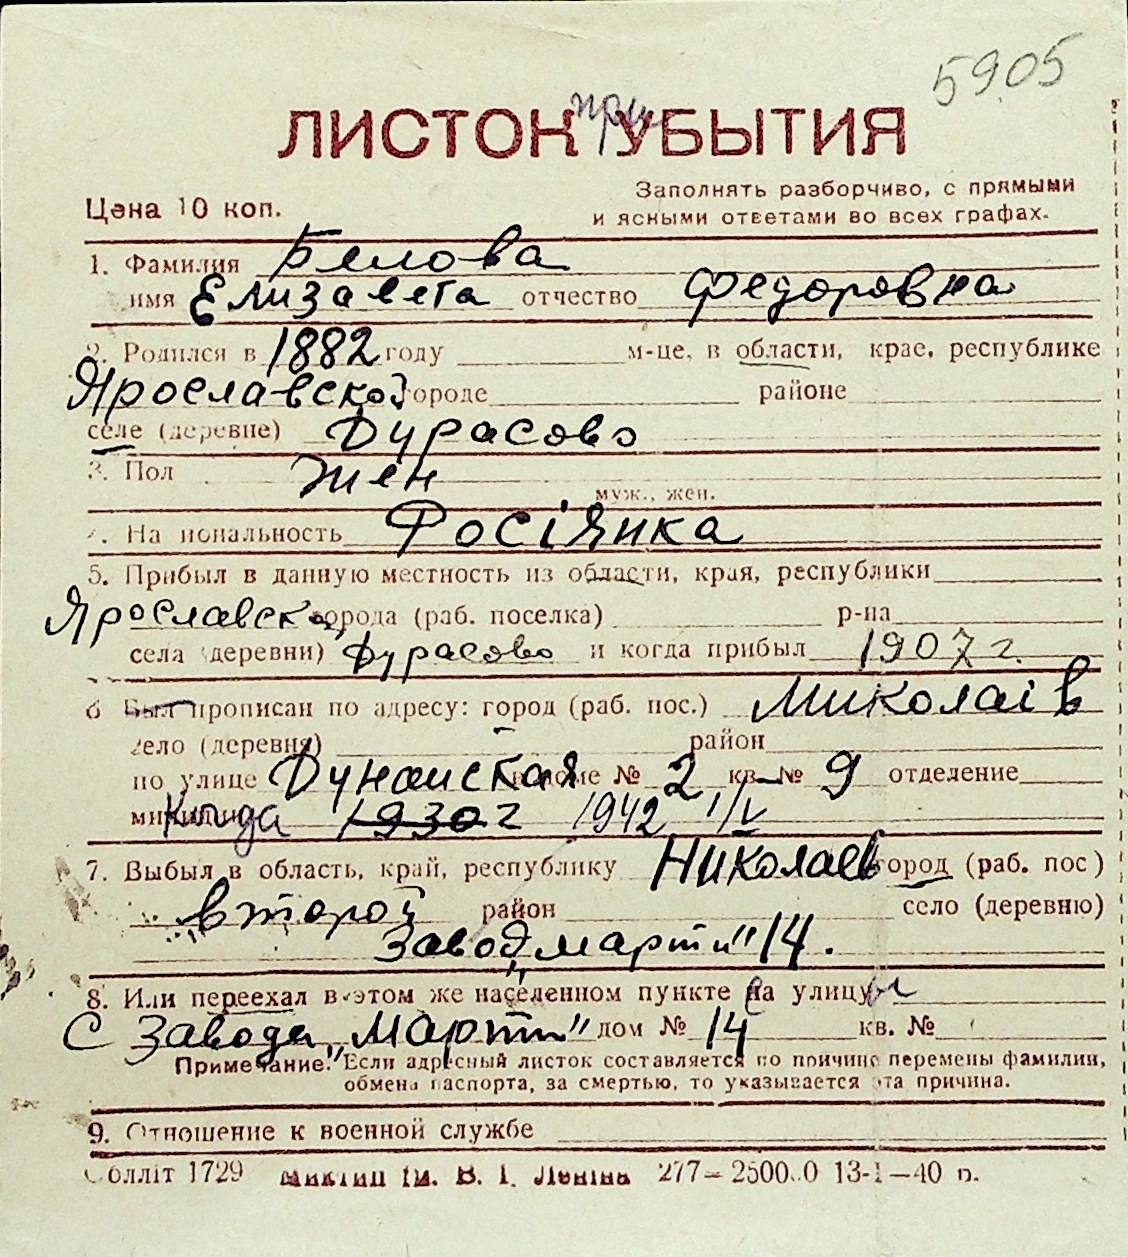 5905
ЛИСТОК при УБЫТИЯ
Заполнять разборчиво, с прямыми
Цена 10 коп.
и ясными ответами во всех графах.
1. Фамилия Белова
имя Елизавета отчество Федоровна
2. Родился в 1882 году м-це, в области, крае, республике
Ярославской городе районе
селе (деревне) Дурасово
3. Пол жен
муж., жен.
4. Национальность Росіянка
5. Прибыл в данную местность из области, края, республики
Ярославск города (раб. поселка) р-на
села (деревни) Дурасово и когда прибыл 1907 г.
6 Был прописан по адресу: город (раб. пос.) Миколаїв
село (деревня) район
по улице Дунайская в доме № 2 кв. № 9 отделение
милиции Когда 1930 г 1942 1/V
7. Выбыл в область, край, республику Николаев город (раб. пос)
второй район село (деревню)
завод „марти" 14.
8. Или переехал в этом же населенном пункте на улицу
С завода „Марти" дом № 14 кв. №
Примечание. Если адресный листок составляется по причине перемены фамилии,
обмена паспорта, за смертью, то указывается эта причина.
9. Отношение к военной службе
Облліт 1729 ім. В. І. Леніна 277— 13-1—40 р.